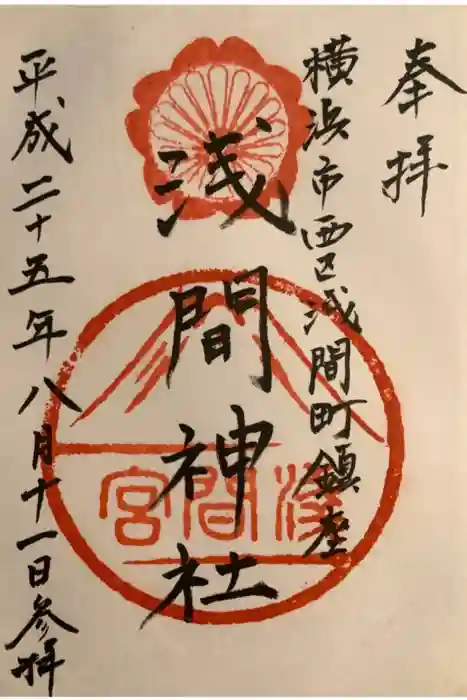 奉拝
横浜市西区浅間町鎮座
浅間神社
浅間宮
平成二十五年八月十一日参拝